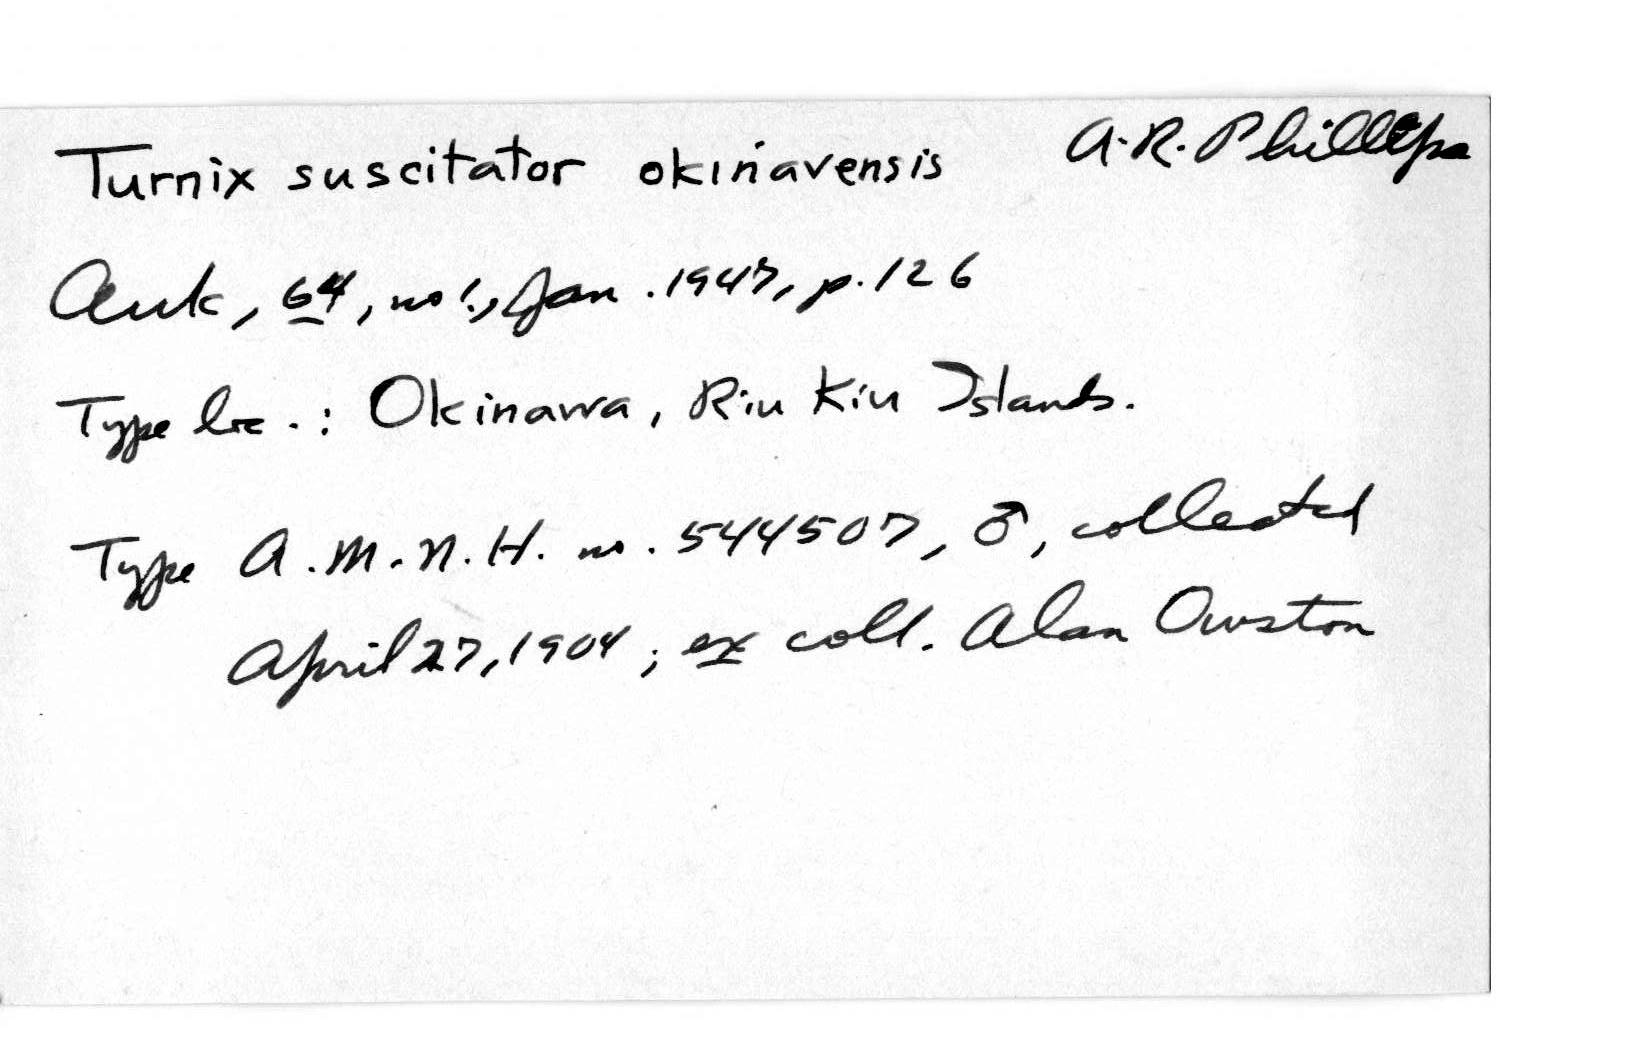 Turnix suscitator okinavensis A. R. Phillips
Auk, 64, no 1., Jan. 1947, p. 126
Type loc. : Okinawa, Riu Kiu Islands.
Type A. M. N. H. no. 544507, ♂, collected
April 27, 1904 ; ex coll. Alan Owston